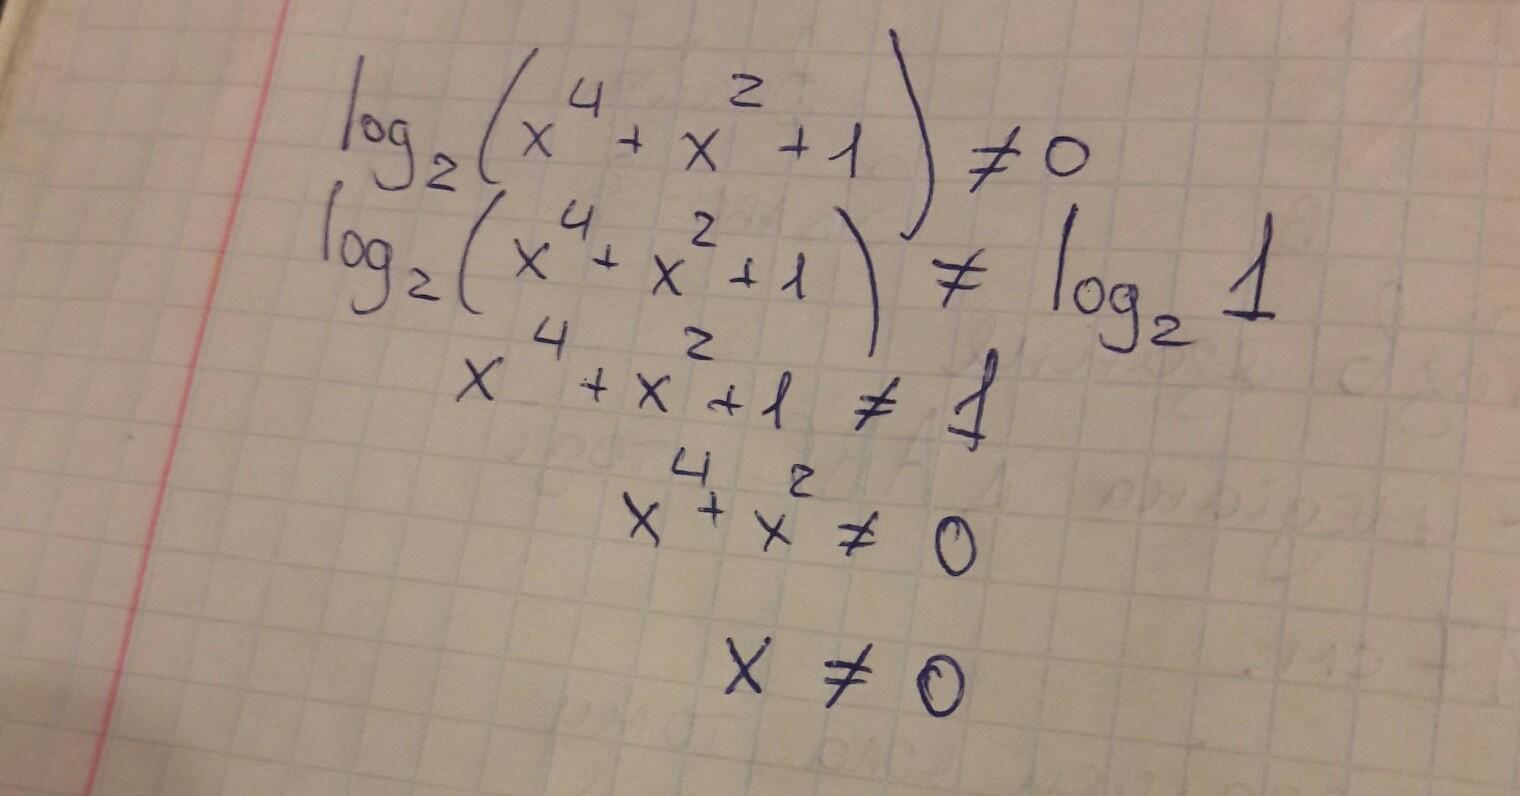 log₂(x⁴ + x² + 1) ≠ 0
log₂(x⁴ + x² + 1) ≠ log₂ 1
x⁴ + x² + 1 ≠ 1
x⁴ + x² ≠ 0
x ≠ 0